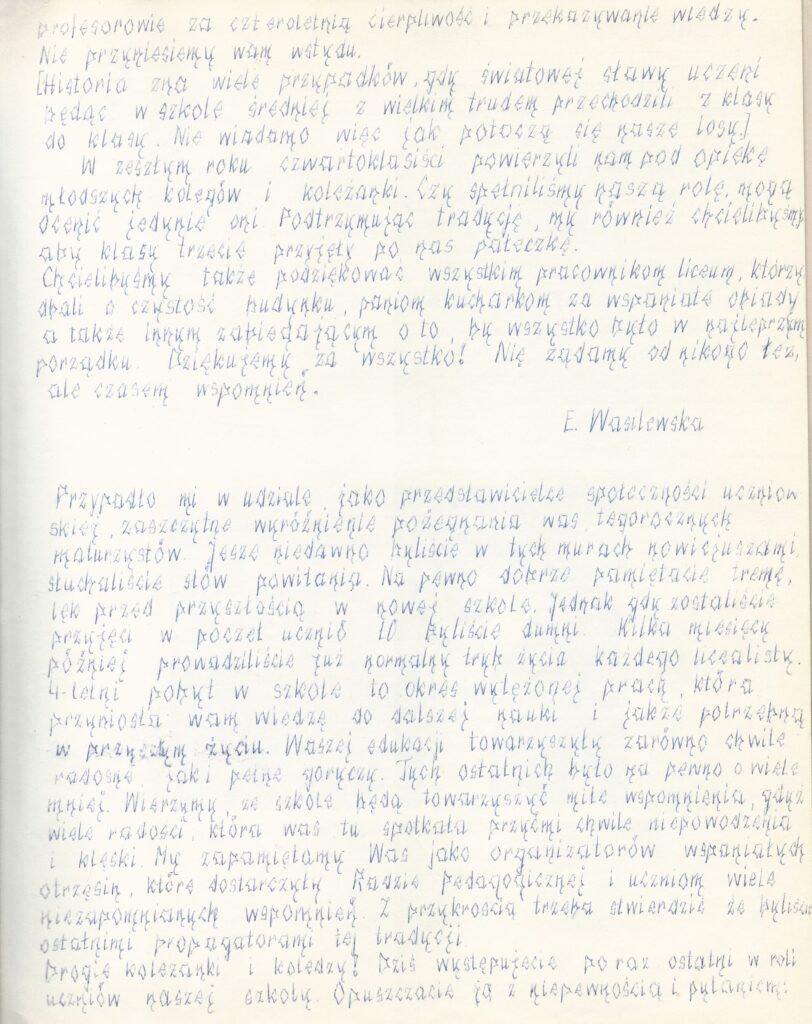 profesorowie za czteroletnią cierpliwość i przekazywanie wiedzy.
Nie przyniesiemy wam wstydu.
[Historia zna wiele przypadków, gdy światowej sławy uczeni
będąc w szkole średniej z wielkim trudem przechodzili z klasy
do klasy. Nie wiadamo więc jak potoczą się nasze losy.]
W zeszłym roku czwartoklasiści powierzyli nam pod opiekę
młodszych kolegów i koleżanki. Czy spełniliśmy naszą rolę, mogą
ocenić jedynie oni. Podtrzymując tradycję, my również chcielibyśmy
aby klasy trzecie przyjęły po nas pałeczkę.
Chcielibyśmy także podziękować wszystkim pracownikom liceum, którzy
dbali o czystość budynku, paniom kucharkom za wspaniałe obiady
a także innym zabiegającym o to, by wszystko było w najlepszym
porządku. Dziękujemy za wszystko! Nie żądamy od nikogo łez,
ale czasem wspomnień.
E. Wasilewska
Przypadło mi w udziale, jako przedstawicielce społeczności uczniow
skiej, zaszczytne wyróżnienie pożegnania was, tegorocznych
maturzystów. Jesze niedawno byliście w tych murach nowicjuszami,
słuchaliście słów powitania. Na pewno dobrze pamiętacie tremę,
lęk przed przyszłością w nowej szkole. Jednak gdy zostaliście
przyjęci w poczet ucznió LO byliście dumni. Kilka miesięcy
później prowadziliście już normalny tryb życia każdego licealisty.
4-letni pobyt w szkole to okres wytężonej pracy, która
przyniosła wam wiedzę do dalszej nauki i jakże potrzebną
w przyszłym życiu. Waszej edukacji towarzyszyły zarówno chwile
radosne, jak i pełne goryczy. Tych ostatnich było na pewno o wiele
mniej. Wierzymy, że szkole będą towarzyszyć miłe wspomnienia, gdyż
wiele radości, która was tu spotkała przyćmi chwile niepowodzenia
i klęski. My zapamiętamy Was jako organizatorów wspaniałych
otrzęsin, które dostarczyły Radzie Pedagogicznej i uczniom wiele
niezapomnianych wspomnień. Z przykrością trzeba stwierdzić że byliście
ostatnimi propagatorami tej tradycji.
Drogie koleżanki i koledzy! Dziś występujecie po raz ostatni w roli
uczniów naszej szkoły. Opuszczacie ją z niepewnością i pytaniem: